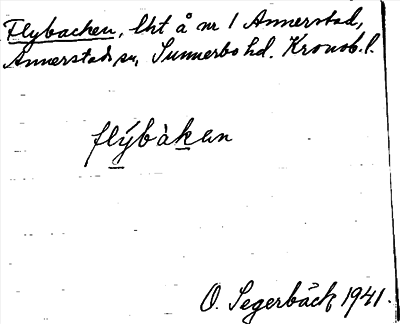 Flybacken, lht å nr 1 Annerstad,
Annerstads sn, Sunnerbo hd. Kronob. l.
flýbàken
O. Segerbäck 1941.